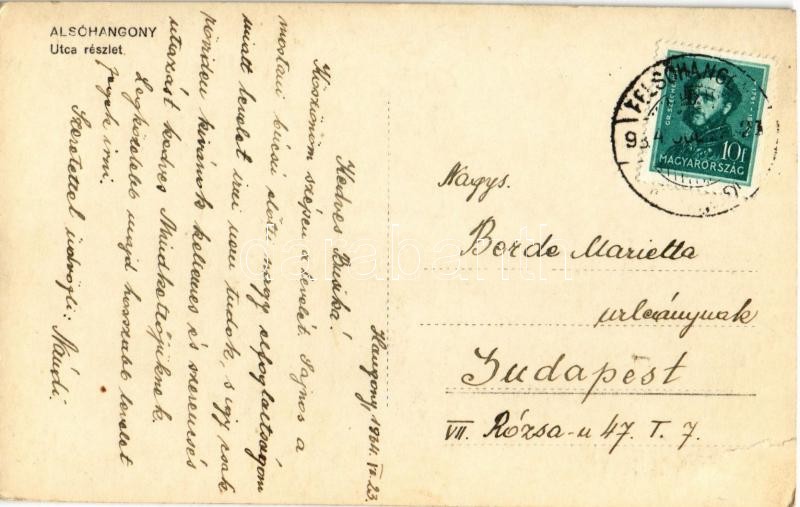 ALSÓHANGONY
Utca részlet
Hangony, 1934. VI. 23.
Kedves Buska!
Köszönöm szépen a levelét. Sajnos a
mostani búcsú előtti nagy elfoglaltságom
miatt levelet írni nem tudok, s így csak
röviden kívánok kellemes és szerencsés
utazást kedves Mindkettőjüknek.
Legközelebb majd hosszabb levelet
fogok írni.
Szeretettel üdvözli: Nándi.
FELSŐHANG
934
GR. SZÉCHE
10f
MAGYARORSZÁG
Nagys.
Berde Marietta
urleánynak
Budapest
VII. Rózsa-u 47. T. 7.
darabanth